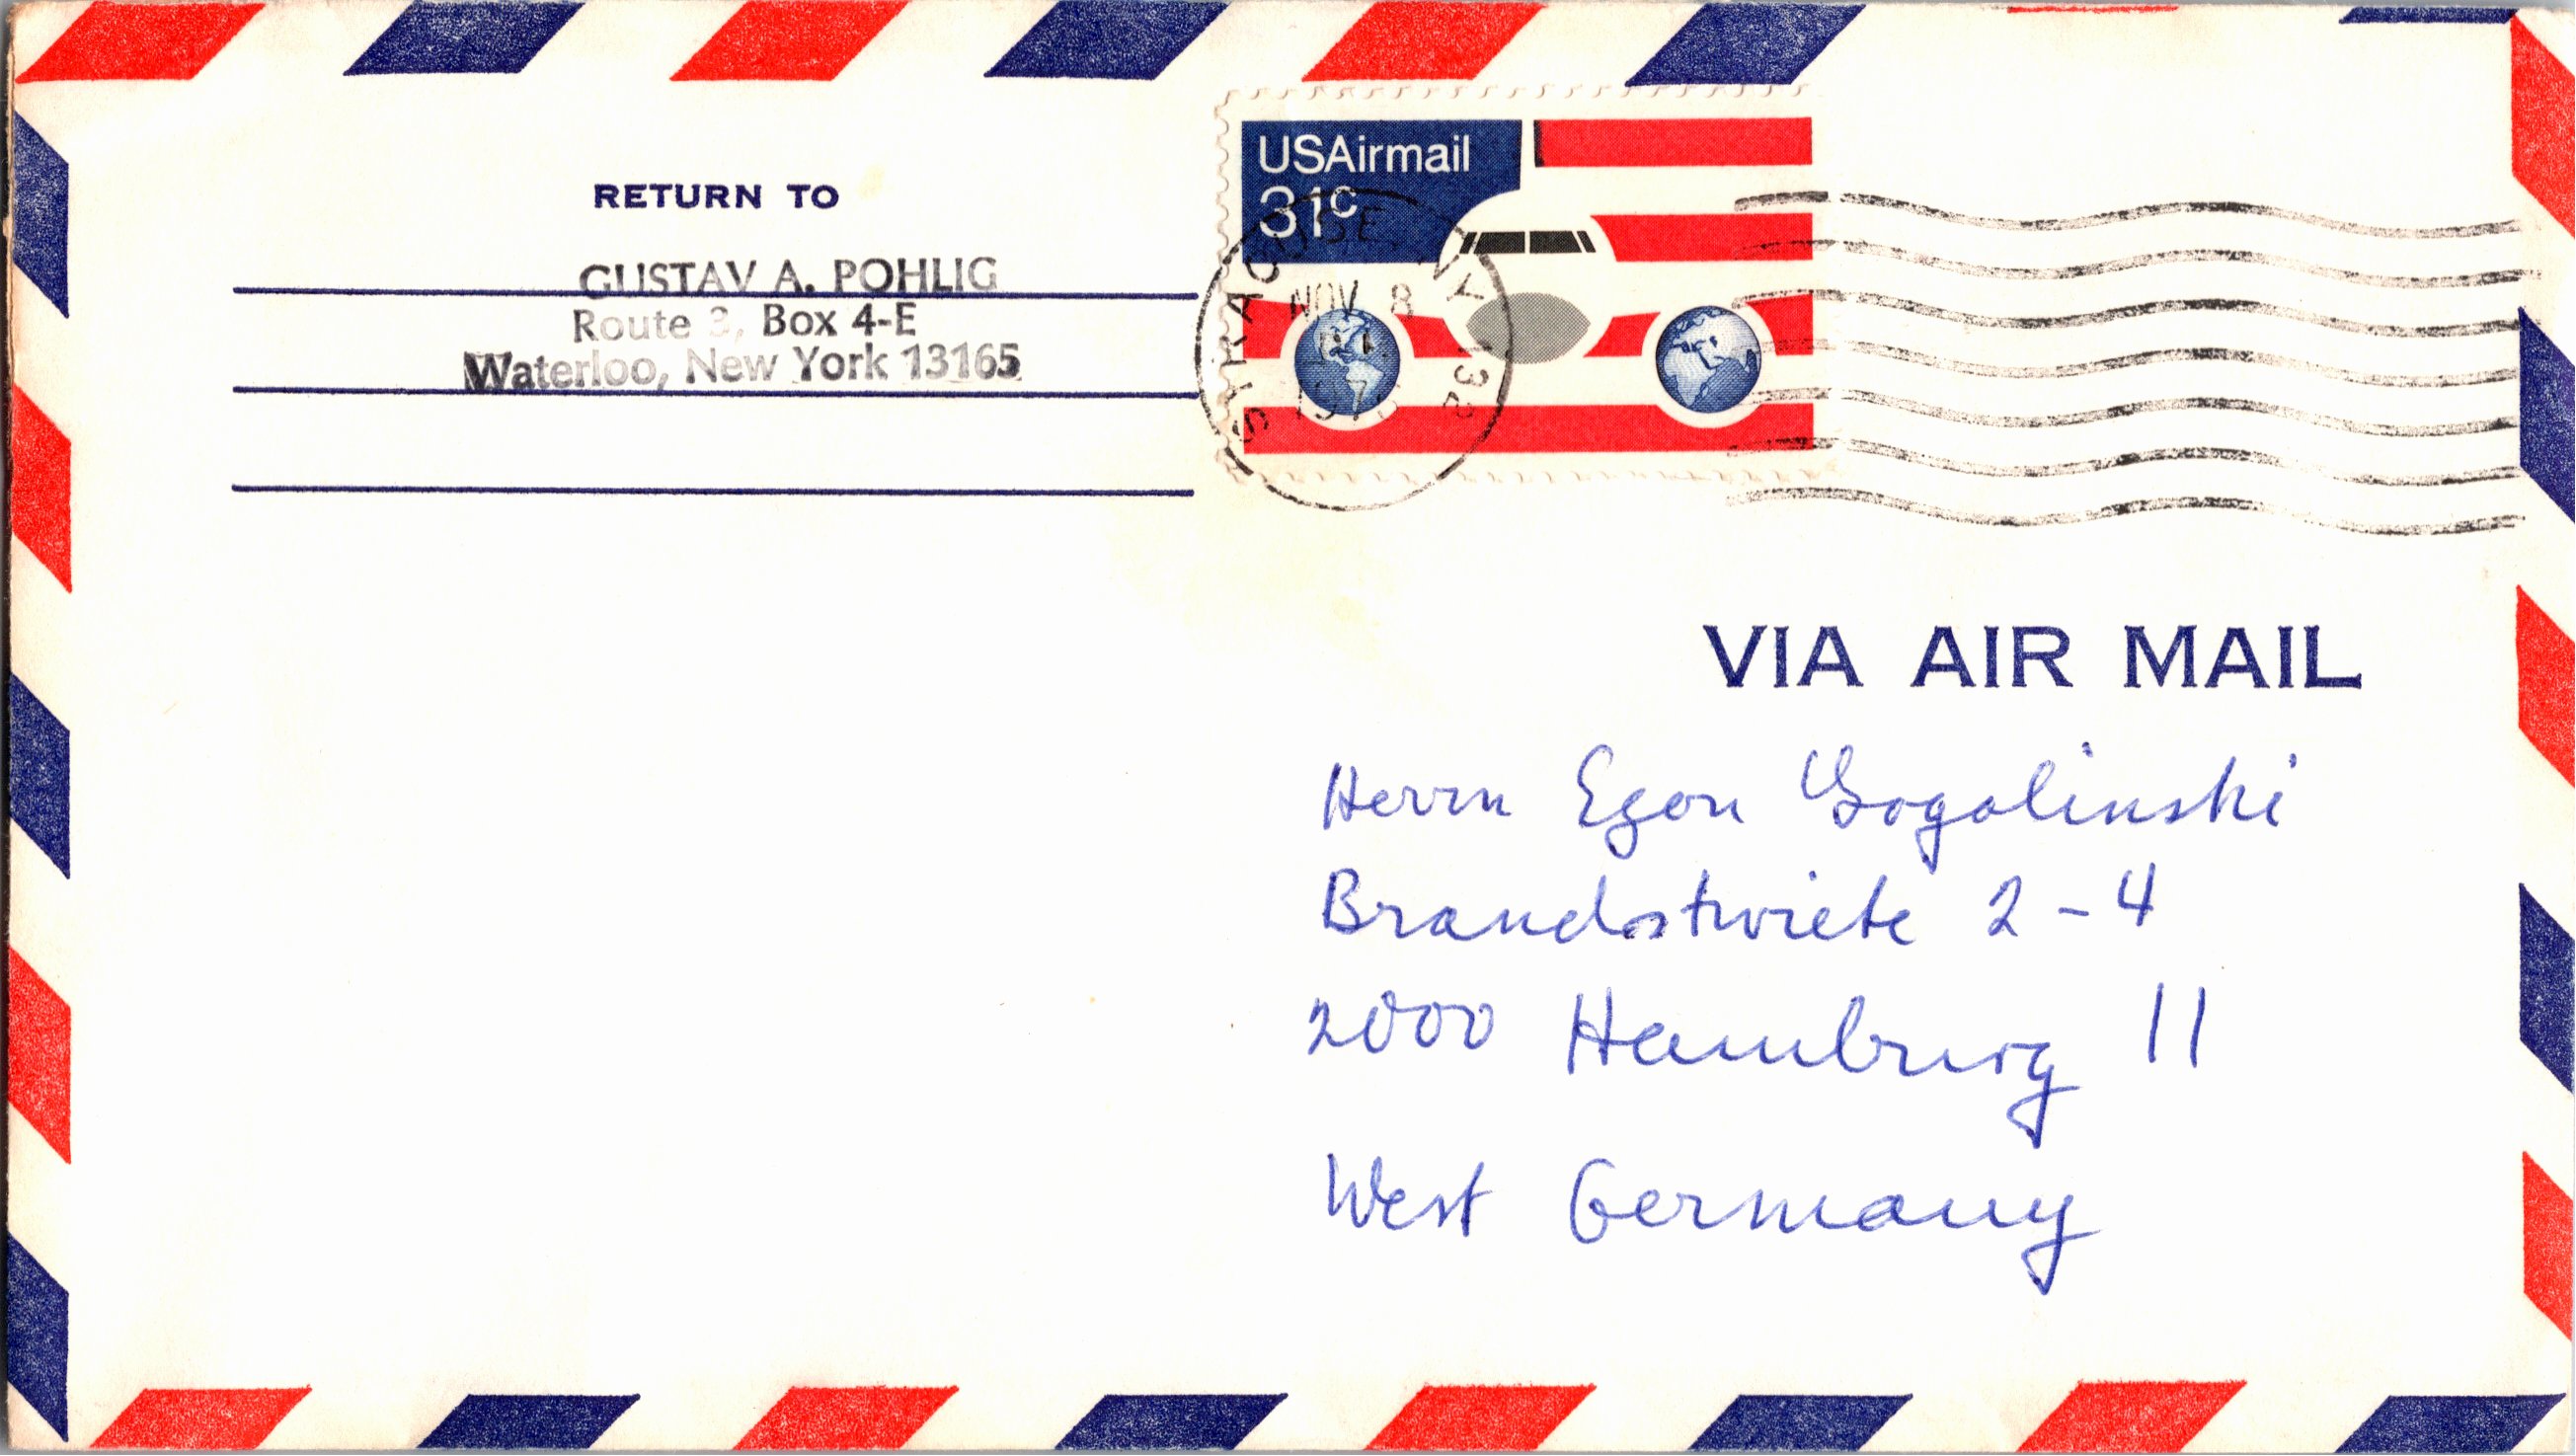 RETURN TO
GUSTAV A. POHLIG
Route 3, Box 4-E
Waterloo, New York 13165
USAirmail
31c
SYRACUSE, NY 132
NOV 8
VIA AIR MAIL
Herrn Egon Gogolinski
Brandstwiete 2-4
2000 Hamburg 11
West Germany